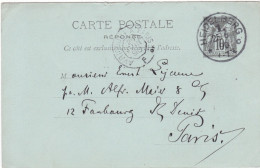 CARTE POSTALE
RÉPONSE
Ce côté est exclusivement réservé à l'adresse.
HEIDELBERG
10
M. onsieur Ernst
p. M. Alfr. Mais & Co
12 Faubourg St Denis
Paris.